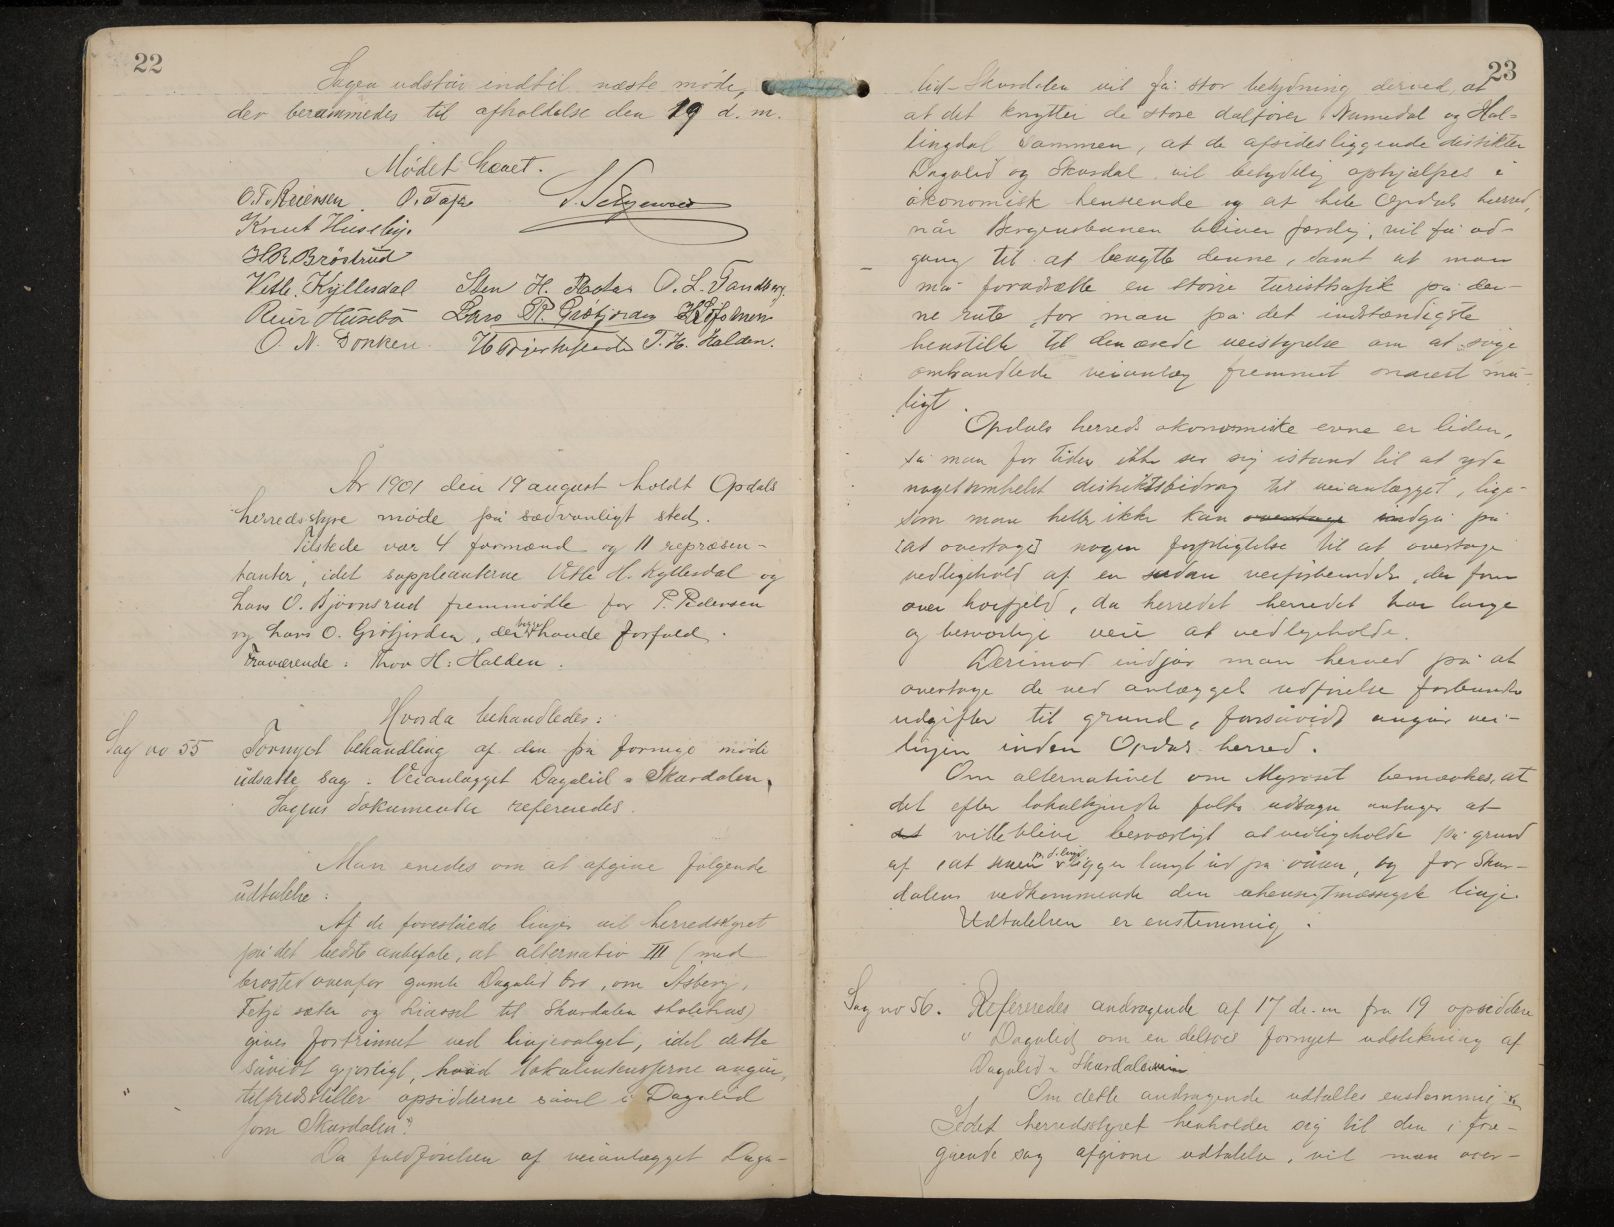 22
Sagen udstaar indtil næste møde,
der berammedes til afholdelse den 19 d. m.
Mødet hævet.
O. T. Reiersen O. Tofte
Knut Huseby.
H R Brøstrud
Vetle Kyllesdal Sten H. O. L. Tandberg.
Reier Husebø Lars
O. N. Donken. T. H. Halden.
År 1901 den 19 august holdt Opdals
herredsstyre møde på sædvanligt sted.
Tilstede var 4 formænd og 11 repræsen-
tanter, idet suppleanterne Vetle H. Kyllesdal og
Lars O. Bjørnsrud fremmødte for P. Pedersen
og Lars O. Grøtjorden, der begge havde forfald.
Fraværende: Thov H: Halden.
Hvorda behandledes:
Sag no 55 Fornyet behandling af den på forrige møde
udsatte sag: Veianlægget Dagalid - Skurdalen.
Sagens dokumenter refereredes.
Man enedes om at afgive følgende
udtalelse:
Af de foreslåede linjer vil herredsstyret
på det bedste anbefale, at alternativ III (med
brosted ovenfor gamle Dagalid bro, om Åsberg,
Fetja sæter og Liaset til Skurdalen skolehus)
gives fortrinnet ved linjevalget, idet dette
såvidt gjørligt, hvad lokalinteresserne angår,
tilfredsstiller opsidderne såvel i Dagalid
som Skurdalen".
Da fuldførelsen af veianlægget Daga-
23
lid - Skurdalen vil få stor betydning derved, at
at det knytter de store dalfører Numedal og Hal-
lingdal sammen, at de afsidesliggende distrikter
Dagalid og Skurdal vil betydelig ophjælpes i
økonomisk henseende og at hele Opdals herred,
når Bergensbanen bliver færdig, vil få ad-
gang til at benytte denne, samt at man
må forudsætte en større turisttrafik på den-
ne rute, for man på det indstændigste
henstille til den ærede veistyrelse om at søge
omhandlede veianlæg fremmet snarest mu-
ligt.
Opdals herreds økonomiske evne er liden,
så man for tiden ikke ser sig istand til at yde
nogetsomhelst distriktsbidrag til veianlægget, lige-
som man heller ikke kan overtage indgå på
[at overtage] nogen forpligtelse til at overtage
vedligehold af en sådan veiforbindelse, der fører
over høifjeld, da herredet herredet har lange
og besværlige veie at vedligeholde.
Derimod indgår man herved på at
overtage de ved anlægget udførelse forbundne
udgifter til grund, forsåvidt angår vei-
linjen inden Opdals herred.
Om alternativet om Myrset bemærkes, at
det efter lokalkjendte folks udsagn antages at
det ville blive besværligt at vedligeholde på grund
af, at linjen ligger langt ud på åsen, og for Skur-
dalens vedkommende den uhensigtmæssigste linje.
Udtalelsen er enstemmig.
Sag no 56. Refereredes andragende af 17 ds. m fra 19 opsiddere
i Dagalid om en delsvis fornyet udstikning af
Dagalid - Skurdalsveien
Om dette andragende udtaltes enstemmig:
Idet herredsstyret henholder sig til den i fore-
gående sag afgivne udtalelse, vil man over-